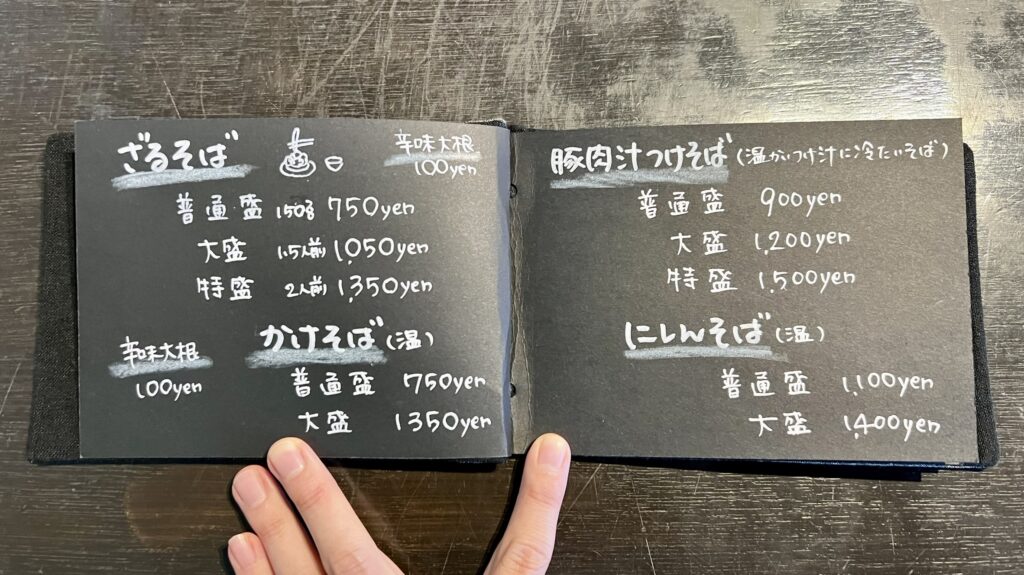 ざるそば
辛味大根
100yen
普通盛 150g 750yen
大盛 1.5人前 1,050yen
特盛 2人前 1,350yen
かけそば(温)
辛味大根
100yen
普通盛 750yen
大盛 1350yen
豚肉汁つけそば(温かいつけ汁に冷たいそば)
普通盛 900yen
大盛 1,200yen
特盛 1,500yen
にしんそば(温)
普通盛 1,100yen
大盛 1,400yen